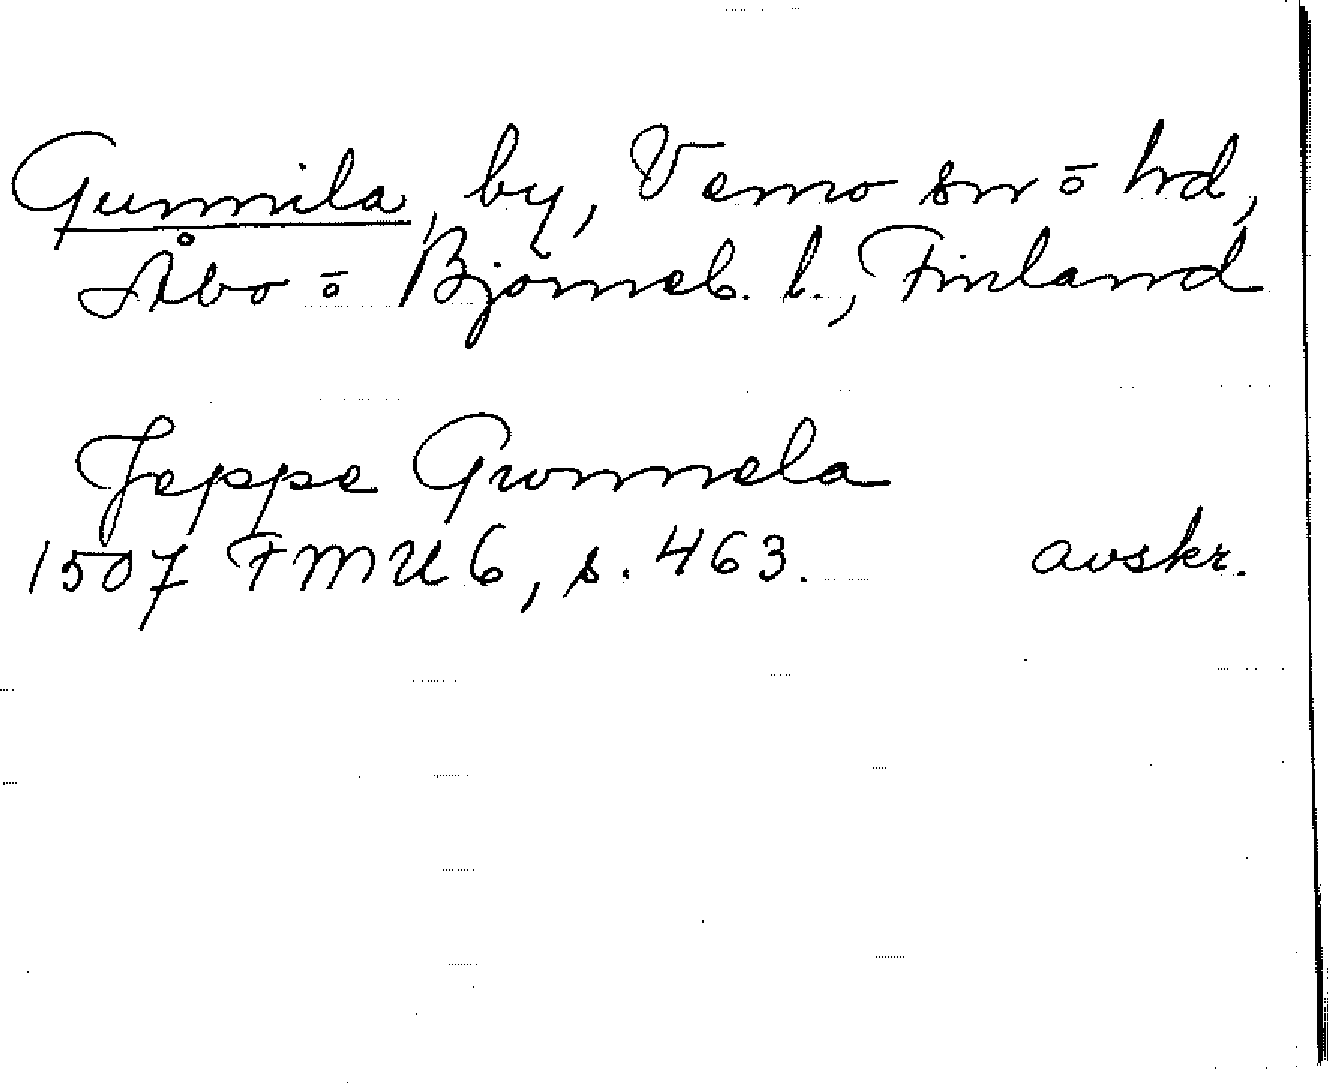 Gunnila, by, Vemo sn ō hd,
Åbo ō Björneb. l., Finland
Jeppe Gwnnela
1507 FMU 6, s. 463. avskr.